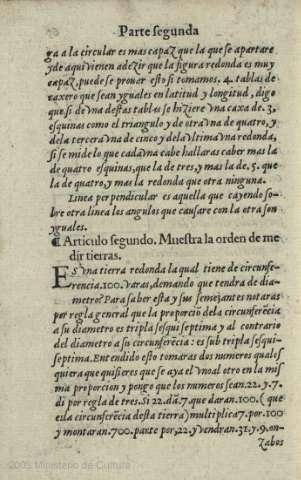 Parte segunda
ga a la circular es mas capaz que la que se apartare
y de aqui vienen a dezir que la figura redonda es muy
capaz, puede se prouar esto si tomamos. 4. tablas de
taxero que sean yguales en latitud y longitud, digo
que si de vna destas tablas se hiziere vna caxa de. 3.
esquinas como el triangulo y de otra vna de quatro, y
dela tercera vna de cinco y dela vltima vna redonda,
si se mide lo que cada vna cabe hallaras caber mas la
de quatro esquinas, que la de tres, y mas la de. 5. que
la de quatro, y mas la redonda que otra ninguna.
Linea perpendicular es aquella que cayendo so-
bre otra linea los angulos que causare con la otra son
yguales.
¶ Articulo segundo. Muestra la orden de me
dir tierras.
ES vna tierra redonda la qual tiene de circunfe-
rencia. 100. varas, demando que tendra de dia-
metro? Para saber esta y sus semejantes notaras
por regla general que la proporciõ dela circunferẽcia
a su diametro es tripla sesquiseptima y al contrario
del diametro a su circunferẽcia: es sub tripla sesqui-
septima. Entendido esto tomaras dos numeros quales
quiera que quisieres que se aya el vno al otro en la mis
ma proporcion y pongo que los numeros sean. 22. y. 7.
di por regla de tres. Si 22. dã. 7. que daran. 100. (que
es la circunferẽcia desta tierra) multiplica 7. por. 100
y montaran. 700. parte por, 22. y vendran. 31. y 9. on-
zabos
2003 Ministerio de Cultura